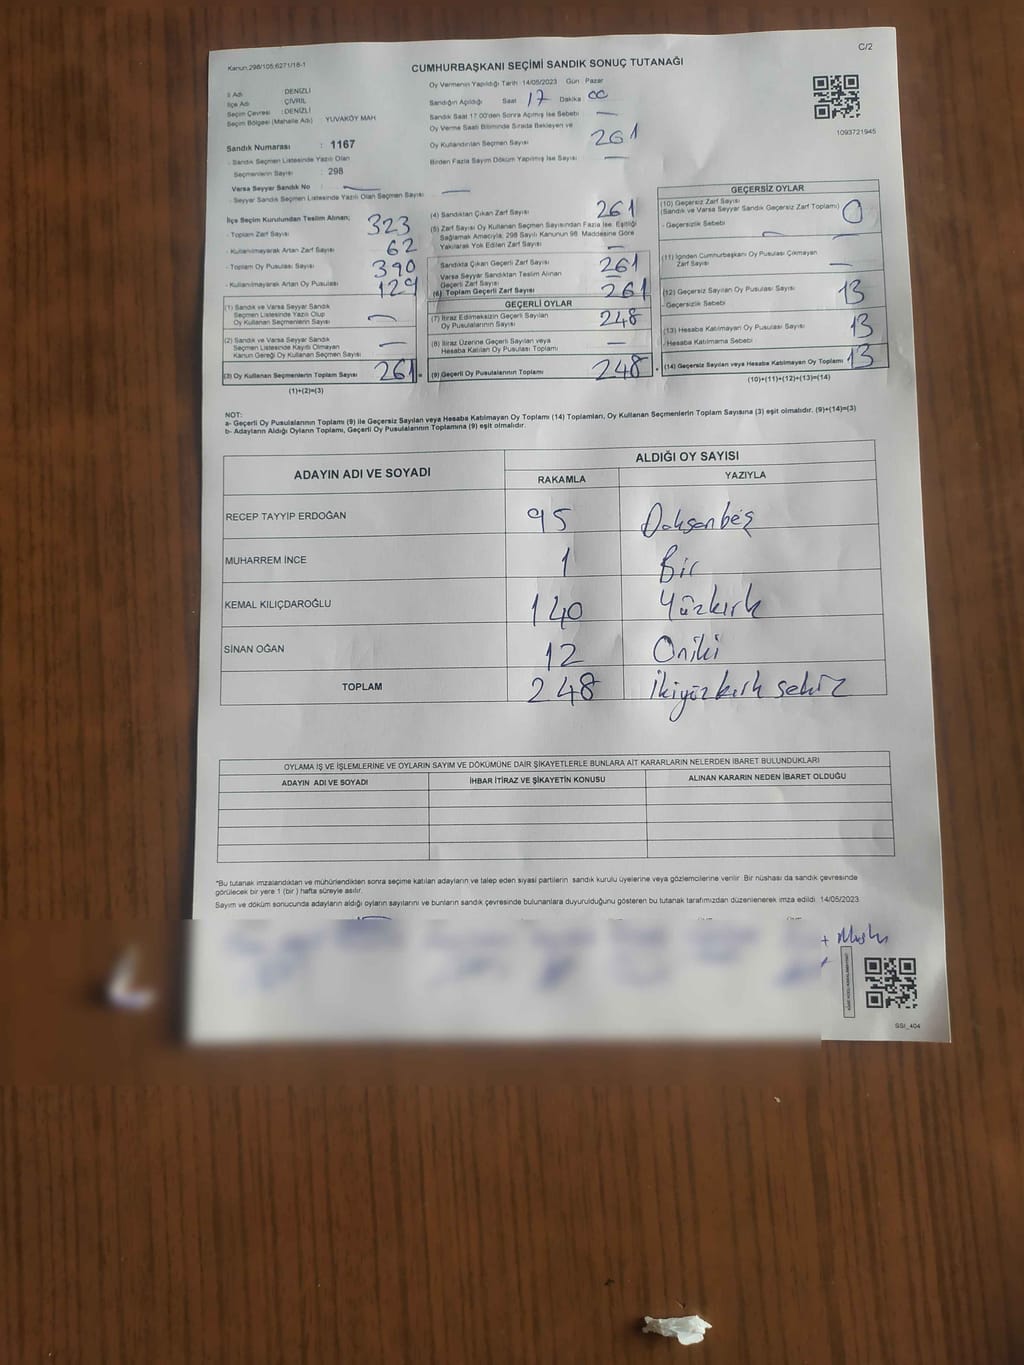 Kanun:298/105;6271/18-1
C/2
CUMHURBAŞKANI SEÇİMİ SANDIK SONUÇ TUTANAĞI
İl Adı : DENİZLİ
İlçe Adı : ÇİVRİL
Seçim Çevresi : DENİZLİ
Seçim Bölgesi (Mahalle Adı) : YUVAKÖY MAH
Sandık Numarası : 1167
- Sandık Seçmen Listesinde Yazılı Olan
Seçmenlerin Sayısı : 298
Varsa Seyyar Sandık No
- Seyyar Sandık Seçmen Listesinde Yazılı Olan Seçmen Sayısı
Oy Vermenin Yapıldığı Tarih 14/05/2023 Gün : Pazar
Sandığın Açıldığı Saat 17 Dakika 00
Sandık Saat 17.00'den Sonra Açılmış İse Sebebi —
Oy Verme Saati Bitiminde Sırada Bekleyen ve
Oy Kullandırılan Seçmen Sayısı 261
Birden Fazla Sayım Döküm Yapılmış İse Sayısı —
1093721945
İlçe Seçim Kurulundan Teslim Alınan;
- Toplam Zarf Sayısı 323
- Kullanılmayarak Artan Zarf Sayısı 62
- Toplam Oy Pusulası Sayısı 390
- Kullanılmayarak Artan Oy Pusulası 129
(1) Sandık ve Varsa Seyyar Sandık
Seçmen Listesinde Yazılı Olup
Oy Kullanan Seçmenlerin Sayısı —
(2) Sandık ve Varsa Seyyar Sandık
Seçmen Listesinde Kayıtlı Olmayan
Kanun Gereği Oy Kullanan Seçmen Sayısı —
(3) Oy Kullanan Seçmenlerin Toplam Sayısı 261 =
(1)+(2)=(3)
(4) Sandıktan Çıkan Zarf Sayısı 261
(5) Zarf Sayısı Oy Kullanan Seçmen Sayısından Fazla İse, Eşitliği
Sağlamak Amacıyla; 298 Sayılı Kanunun 98. Maddesine Göre
Yakılarak Yok Edilen Zarf Sayısı —
Sandıkta Çıkan Geçerli Zarf Sayısı 261
Varsa Seyyar Sandıktan Teslim Alınan
Geçerli Zarf Sayısı —
(6) Toplam Geçerli Zarf Sayısı 261
GEÇERLİ OYLAR
(7) İtiraz Edilmeksizin Geçerli Sayılan
Oy Pusulasının Sayısı 248
(8) İtiraz Üzerine Geçerli Sayılan veya
Hesaba Katılan Oy Pusulası Toplamı —
(9) Geçerli Oy Pusulalarının Toplamı 248
GEÇERSİZ OYLAR
(10) Geçersiz Zarf Sayısı
(Sandık ve Varsa Seyyar Sandık Geçersiz Zarf Toplamı) 0
- Geçersizlik Sebebi
(11) İçinden Cumhurbaşkanı Oy Pusulası Çıkmayan
Zarf Sayısı —
(12) Geçersiz Sayılan Oy Pusulası Sayısı 13
- Geçersizlik Sebebi
(13) Hesaba Katılmayan Oy Pusulası Sayısı 13
- Hesaba Katılmama Sebebi
(14) Geçersiz Sayılan veya Hesaba Katılmayan Oy Toplamı 13
(10)+(11)+(12)+(13)=(14)
NOT:
a- Geçerli Oy Pusulalarının Toplamı (9) ile Geçersiz Sayılan veya Hesaba Katılmayan Oy Toplamı (14) Toplamları, Oy Kullanan Seçmenlerin Toplam Sayısına (3) eşit olmalıdır. (9)+(14)=(3)
b- Adayların Aldığı Oyların Toplamı, Geçerli Oy Pusulalarının Toplamına (9) eşit olmalıdır.
ADAYIN ADI VE SOYADI
ALDIĞI OY SAYISI
RAKAMLA YAZIYLA
RECEP TAYYİP ERDOĞAN 95 Doksanbeş
MUHARREM İNCE 1 Bir
KEMAL KILIÇDAROĞLU 140 Yüzkırk
SİNAN OĞAN 12 Oniki
TOPLAM 248 İkiyüzkırk sekiz
OYLAMA İŞ VE İŞLEMLERİNE VE OYLARIN SAYIM VE DÖKÜMÜNE DAİR ŞİKAYETLERLE BUNLARA AİT KARARLARIN NELERDEN İBARET BULUNDUKLARI
ADAYIN ADI VE SOYADI İHBAR İTİRAZ VE ŞİKAYETİN KONUSU ALINAN KARARIN NEDEN İBARET OLDUĞU
*Bu tutanak imzalandıktan ve mühürlendikten sonra seçime katılan adayların ve talep eden siyasi partilerin sandık kurulu üyelerine veya gözlemcilerine verilir. Bir nüshası da sandık çevresinde
görülecek bir yere 1 (bir) hafta süreyle asılır.
Sayım ve döküm sonucunda adayların aldığı oyların sayılarını ve bunların sandık çevresinde bulunanlara duyurulduğunu gösteren bu tutanak tarafımızdan düzenlenerek imza edildi. 14/05/2023
SSI_404